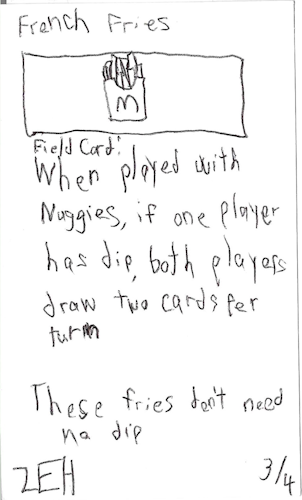 French Fries
M
Field Card:
When played with
Nuggies, if one player
has dip, both players
draw two cards per
turn
These fries don't need
no dip
ZEH 3/4